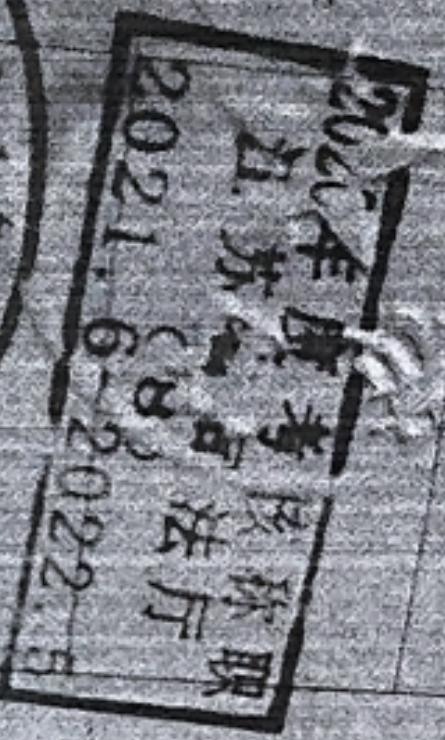 年度考核称职
江苏省司法厅
2021.6-2022.5